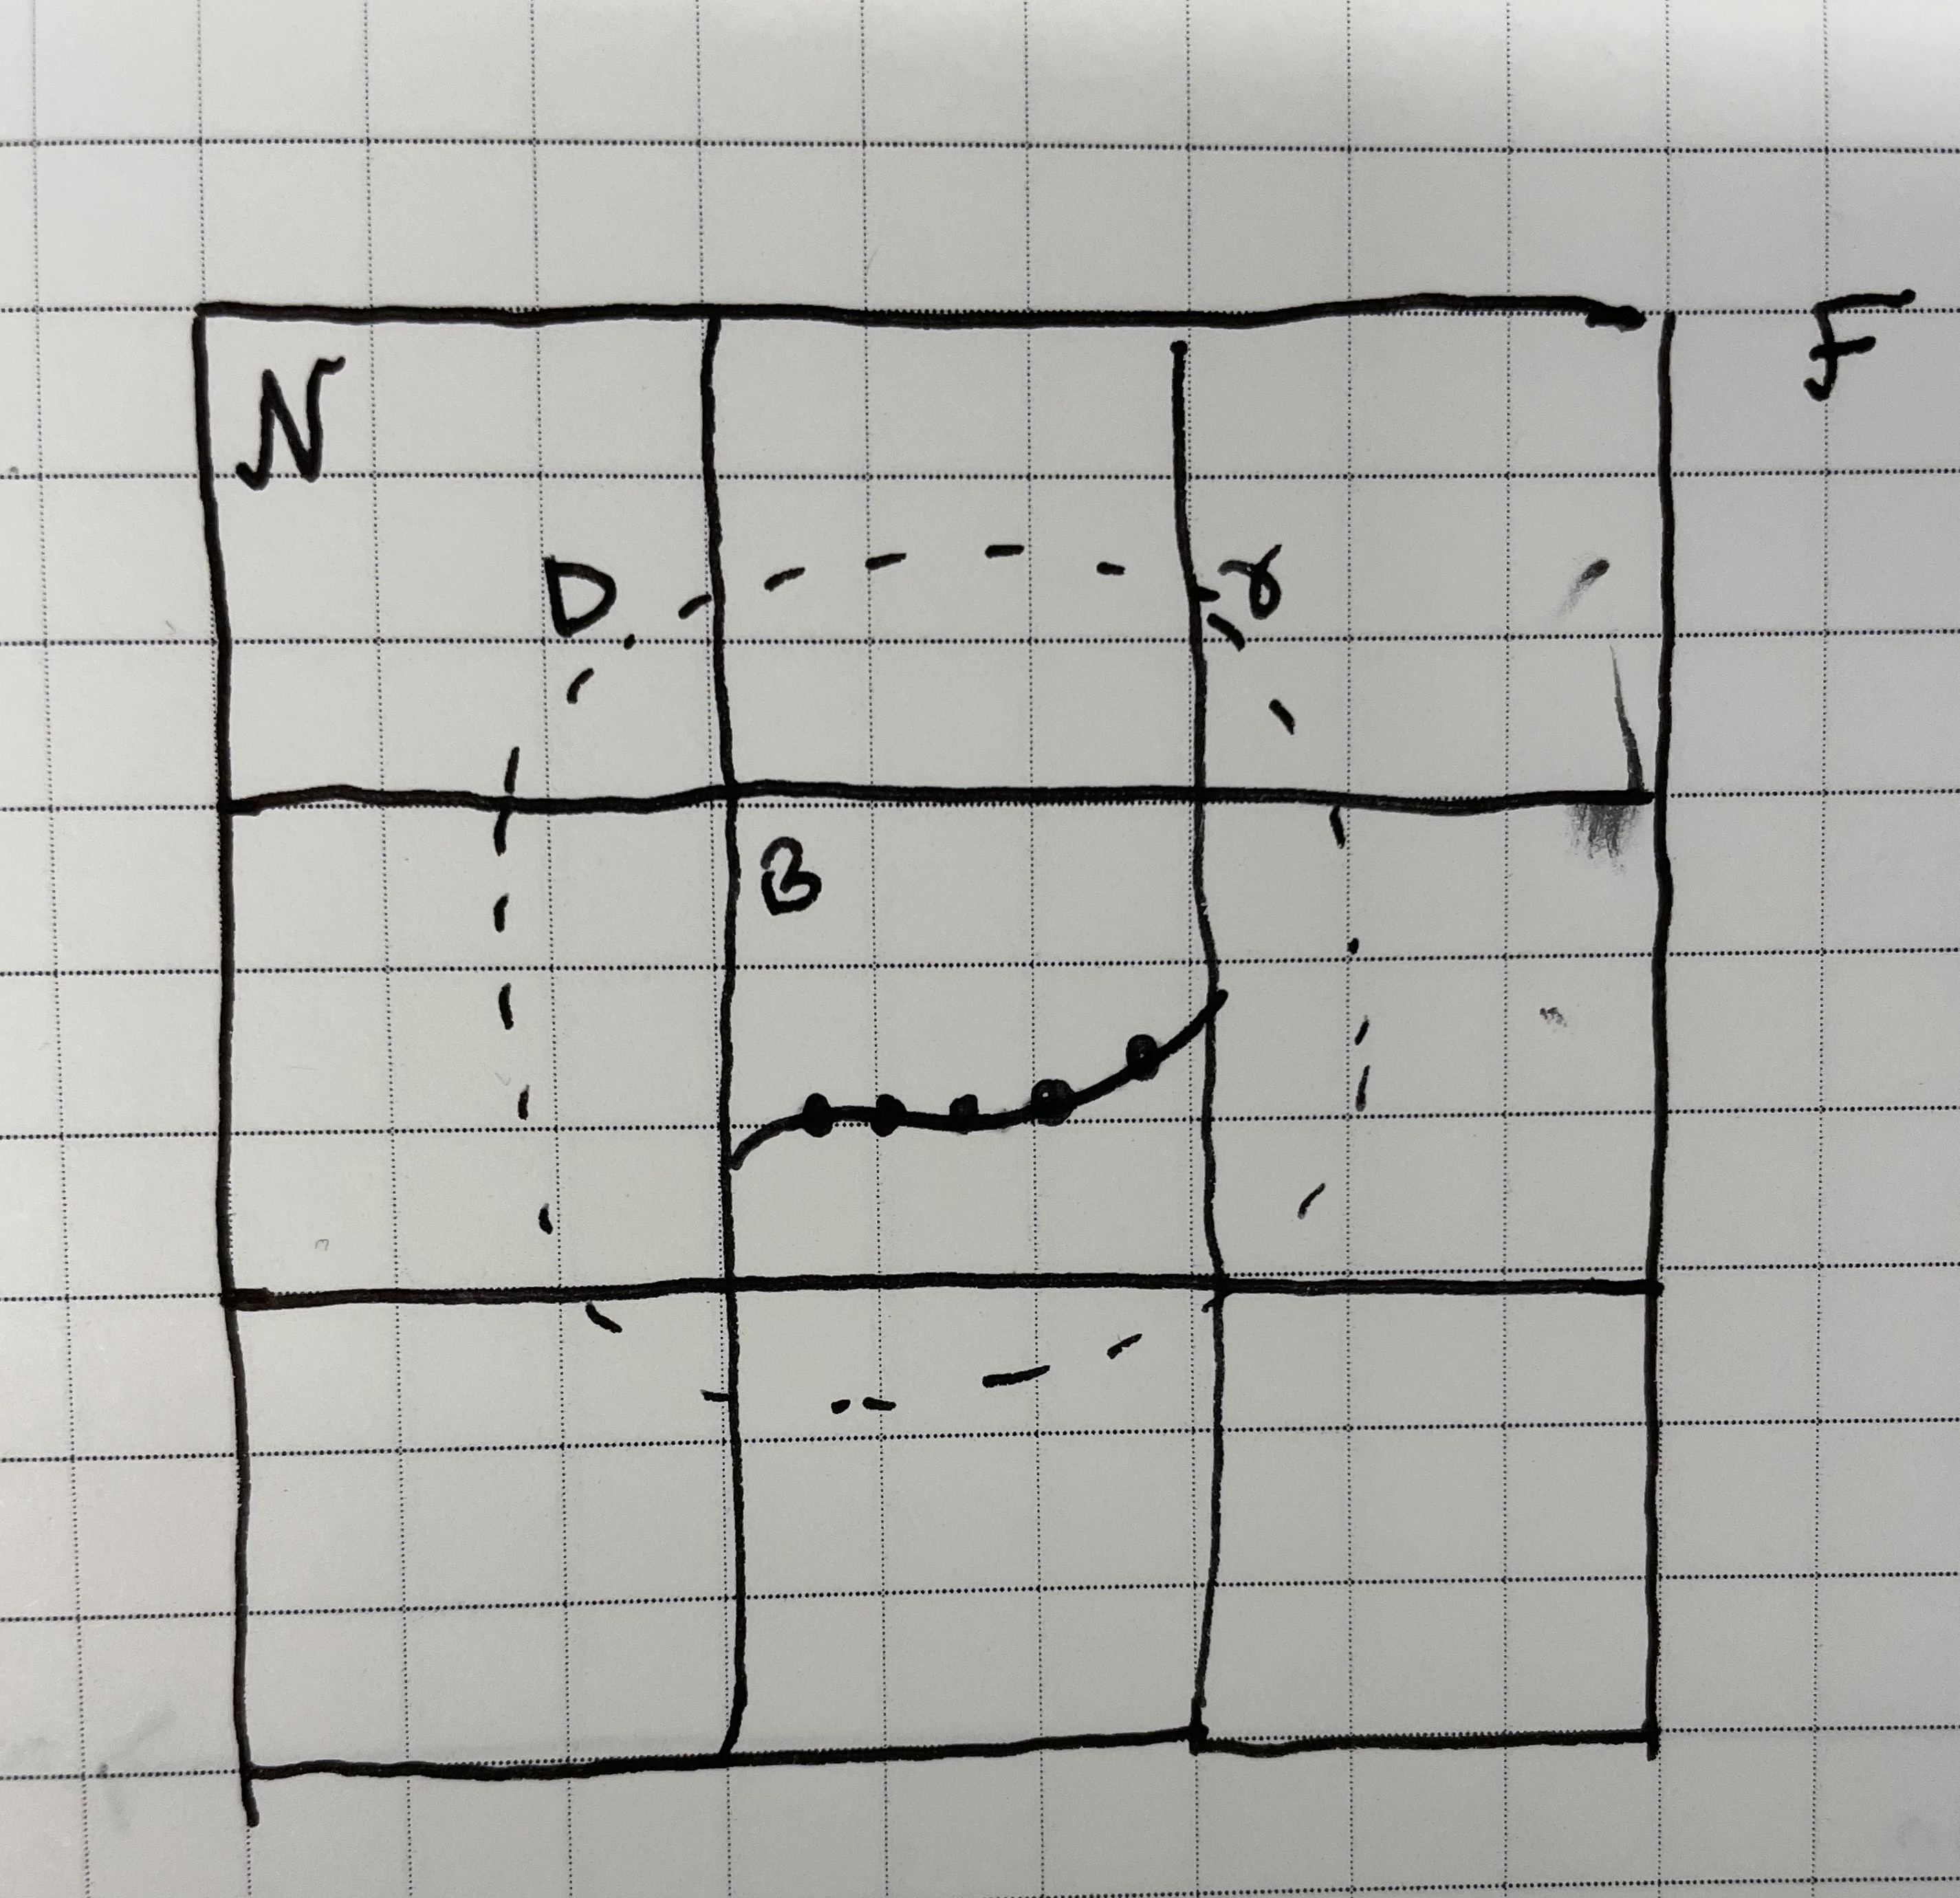 N
F
D
γ
B